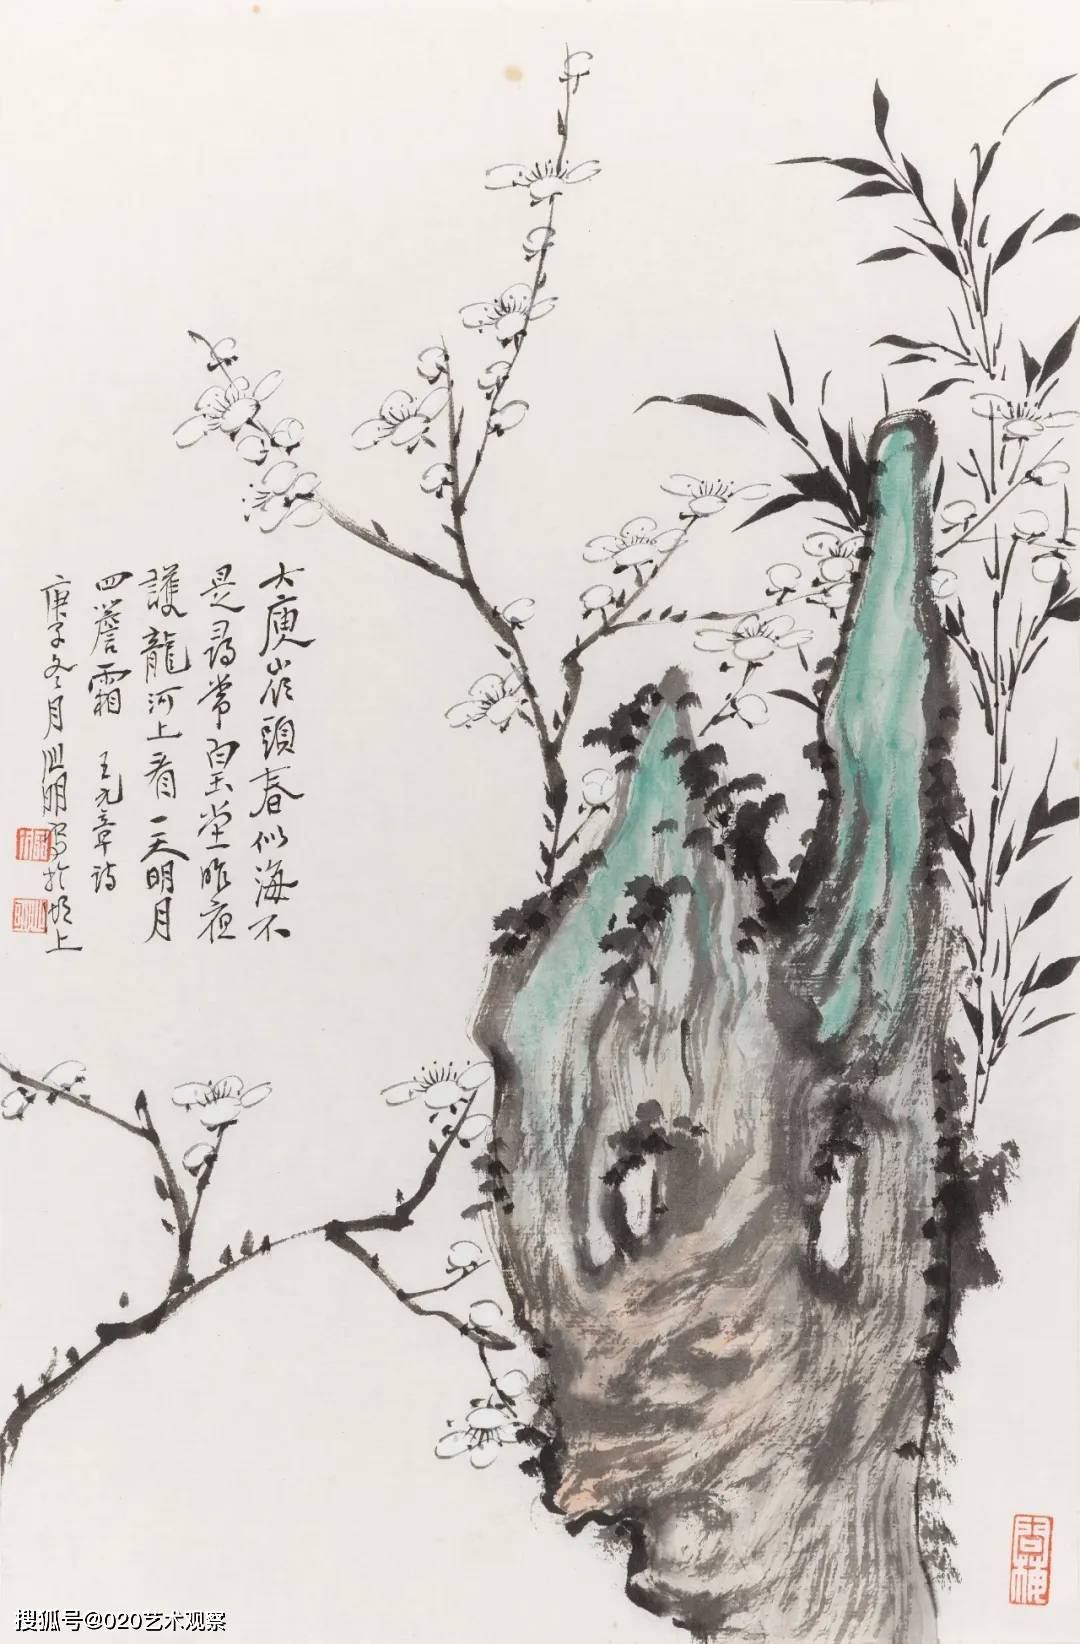 大庾嶺頭春似海不
是尋常白玉堂昨夜
護龍河上看一天明月
四簷霜 王元章詩
庚子冬月 明寫於 上
問梅
搜狐号@020艺术观察